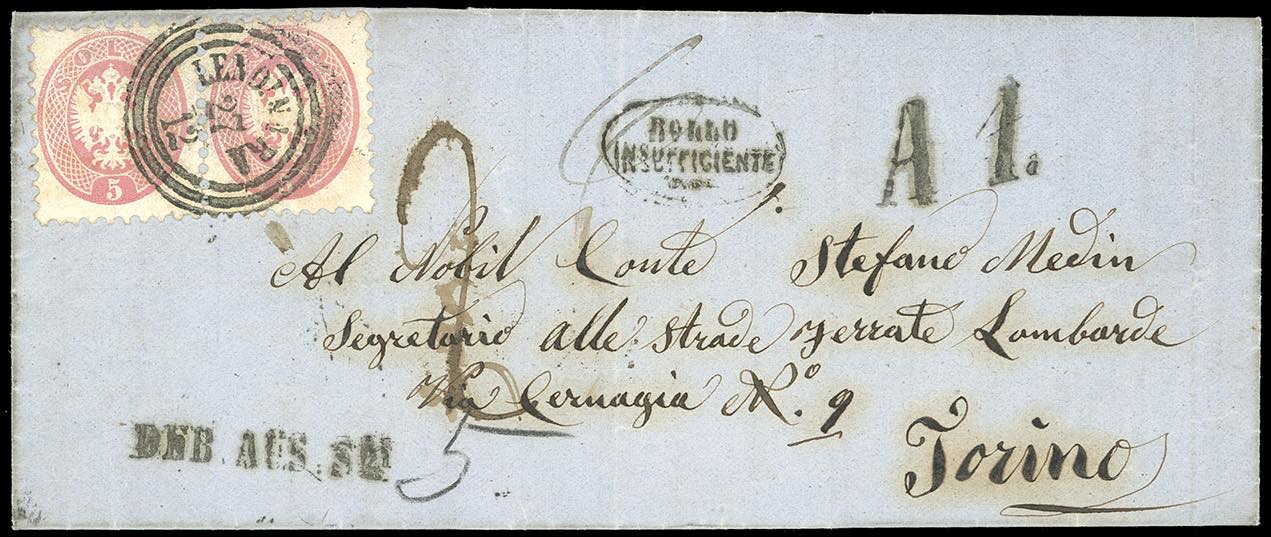 SOL
5
LENDINARA
27
12
6
BOLLO
INSUFFICIENTE
A 1.
Al Nobil Conte Stefano Medin
Segretario alle Strade Ferrate Lombarde
Via Cernagia N.o 9
Torino
5